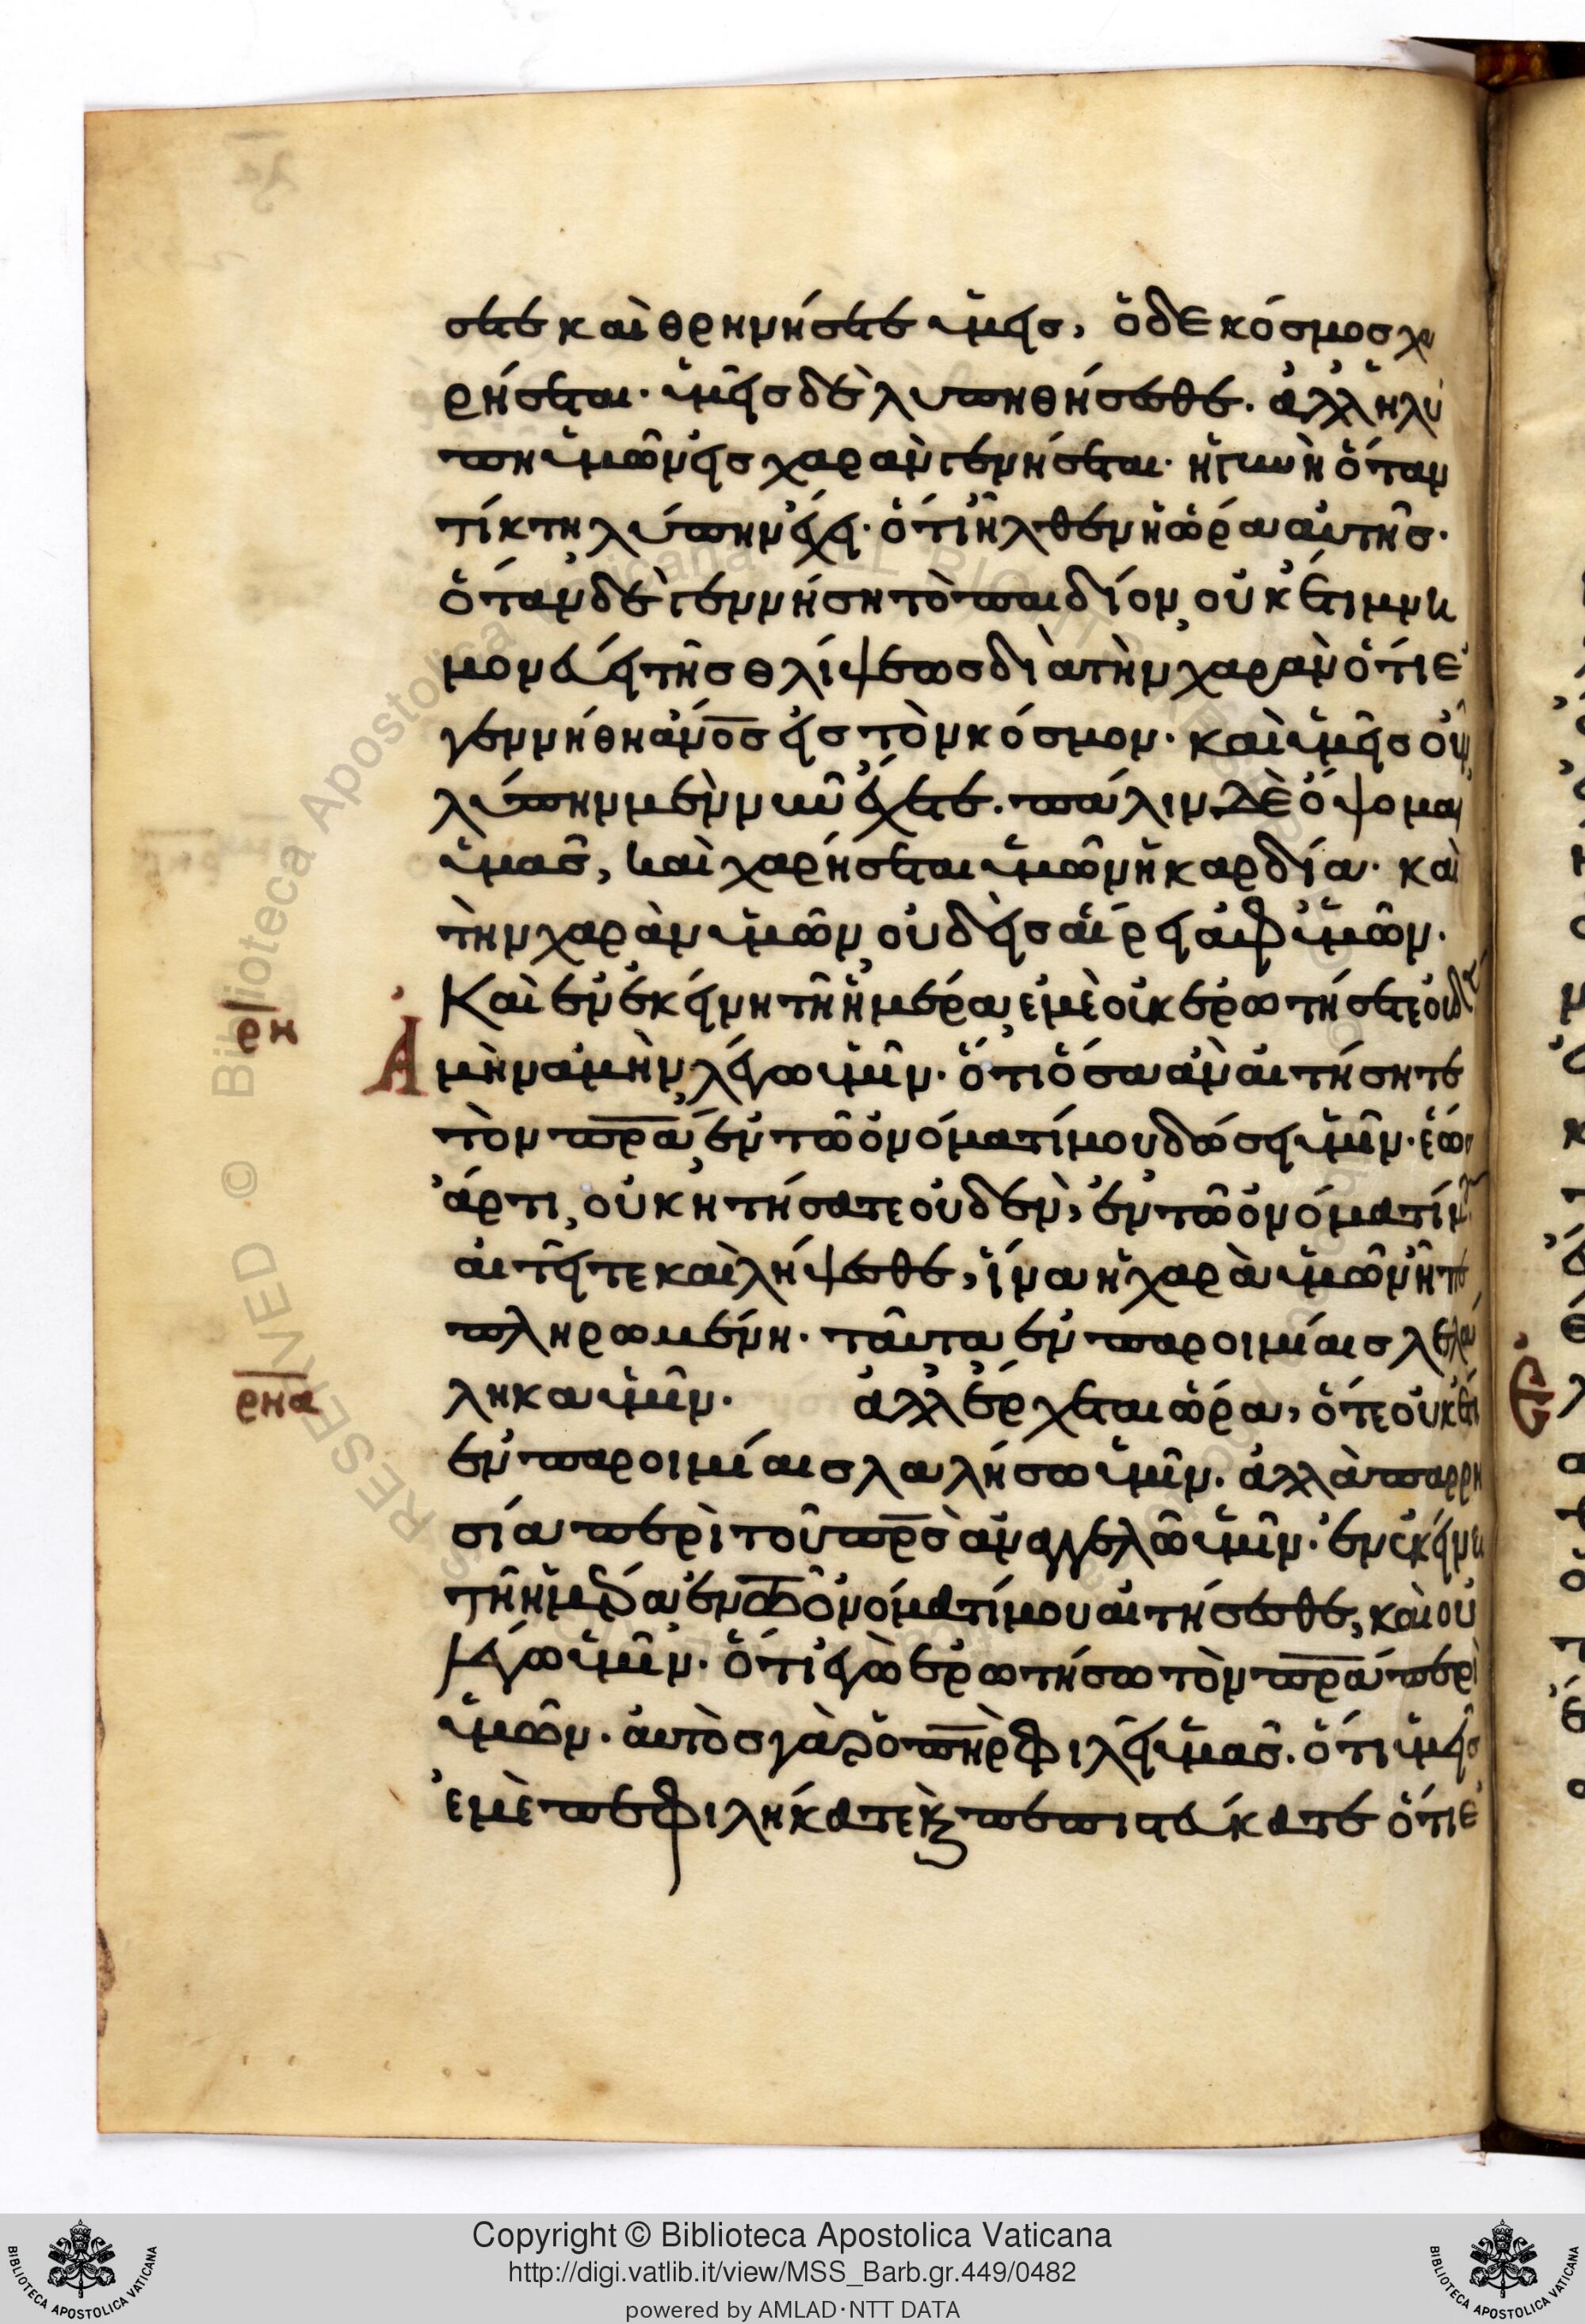 σετε καὶ θρηνήσετε ὑμεῖς, ὁ δὲ κόσμος χα
ρήσεται· ὑμεῖς δὲ λυπηθήσεσθε. ἀλλ ἡ λύ
πη ὑμῶν εἰς χαρὰν γενήσεται· ἡ γυνὴ ὅταν
τίκτη λύπην ἔχει· ὅτι ἦλθεν ἡ ὥρα αὐτῆς·
ὅταν δὲ γεννήση τὸ παιδίον, οὐκέτι μνη
μονεύει τῆς θλίψεως διὰ τὴν χαρὰν ὅτι ἐ
γεννήθη ἄνος εἰς τὸν κόσμον· καὶ ὑμεῖς οὖν
λύπην μὲν νῦν ἔχετε. πάλιν δὲ ὄψομαι
ὑμᾶς, καὶ χαρήσεται ὑμῶν ἡ καρδία· καὶ
τὴν χαρὰν ὑμῶν, οὐδεὶς αἴρει ἀφ ὑμῶν.
ρη Καὶ ἐν ἐκείνη τῆ ἡμέρα, ἐμὲ οὐκ ἐρωτήσετε οὐδέν
Ἀμὴν ἀμὴν, λέγω ὑμῖν· ὅτι ὅσα ἂν αἰτήσητε
τὸν πρα, ἐν τῶ ὀνόματί μου δώσει ὑμῖν· ἕως
ἄρτι, οὐκ ἠτήσατε οὐδὲν, ἐν τῶ ὀνόματί μου
αἰτεῖτε καὶ λήψεσθε, ἵνα ἡ χαρὰ ὑμῶν ἦ πε
πληρωμένη. ταῦτα ἐν παροιμίαις λελά
ρηα ληκα ὑμῖν. ἀλλ ἔρχεται ὥρα, ὅτε οὐκέτι
ἐν παροιμίαις λαλήσω ὑμῖν. ἀλλὰ παρρη
σία περὶ τοῦ πρς ἀναγγελῶ ὑμῖν· ἐν ἐκείνη
τῆ ἡμέρα, ἐν τῶ ὀνόματί μου αἰτήσεσθε, καὶ οὐ
λέγω ὑμῖν. ὅτι ἐγὼ ἐρωτήσω τὸν πρα περὶ
ὑμῶν. αὐτὸς γὰρ ὁ πηρ φιλεῖ ὑμᾶς. ὅτι ὑμεῖς
ἐμὲ πεφιλήκατε κ πεπιστεύκατε ὅτι ἐ
Copyright © Biblioteca Apostolica Vaticana
http://digi.vatlib.it/view/MSS_Barb.gr.449/0482
powered by AMLAD·NTT DATA